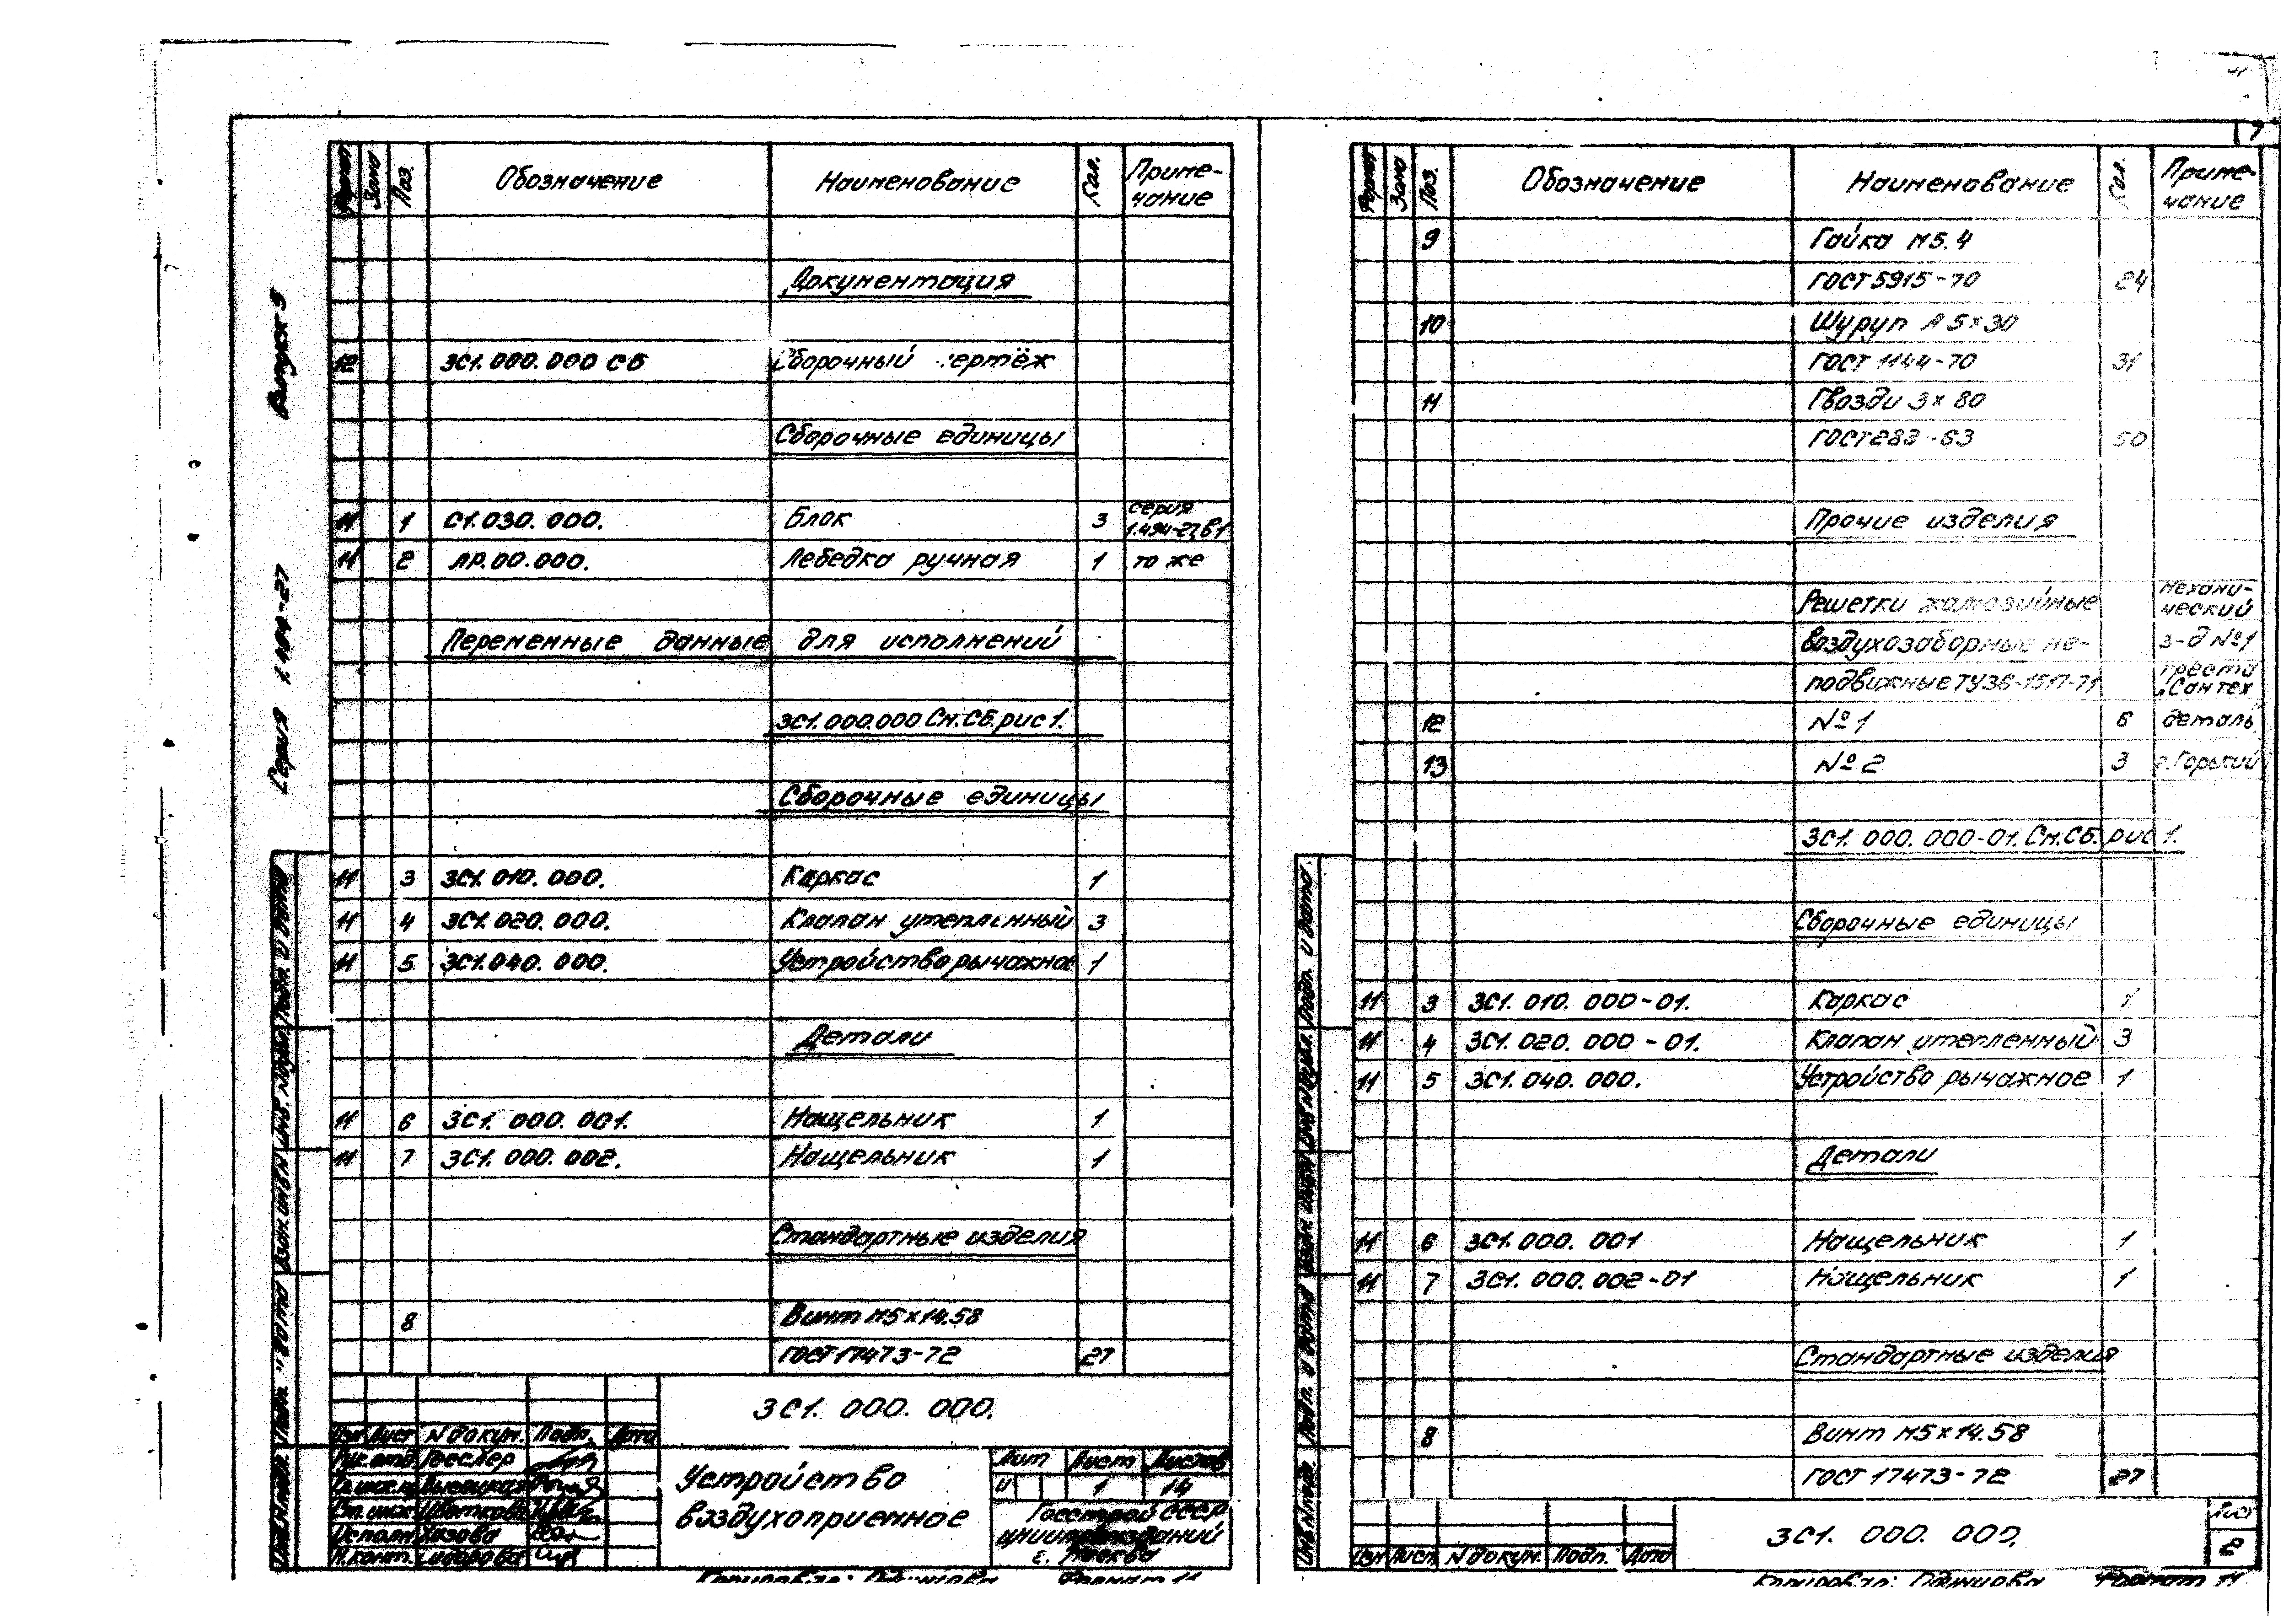 7
Выпуск 5
Серия 1.494-27
Формат Зона Поз. Обозначение Наименование Кол. Приме-
чание
Документация
12 3С1.000.000 СБ Сборочный чертёж
Сборочные единицы
11 1 С1.030.000. Блок 3 серия
1.494-27, в1
11 2 ЛР.00.000. Лебедка ручная 1 то же
Переменные данные для исполнений
3С1.000.000 См.СБ.рис 1.
Сборочные единицы
11 3 3С1.010.000. Каркас 1
11 4 3С1.020.000. Клапан утепленный 3
11 5 3С1.040.000. Устройство рычажное 1
Детали
11 6 3С1.000.001. Нащельник 1
11 7 3С1.000.002. Нащельник 1
Стандартные изделия
8 Винт М5×14.58
ГОСТ 17473-72 27
3С1.000.000.
Изм Лист N докум. Подп. Дата
Рук.отд. Гесслер
Исполн
Н.конт. Сидорова
Устройство
воздухоприемное
Лит Лист Листов
И 1 14
Госстрой СССР
ЦНИИпромзданий
г. Москва
Копировал: Одинцова Формат 11
Формат Зона Поз. Обозначение Наименование Кол. Приме-
чание
9 Гайка М5.4
ГОСТ 5915-70 24
10 Шуруп А 5×30
ГОСТ 1144-70 31
11 Гвозди 3×80
ГОСТ 283-63 50
Прочие изделия
Решетки жалюзийные
воздухозаборные не-
подвижные ТУ36-1517-71
механи-
ческий
з-д №1
треста
"Сантех
12 №1 6 деталь
13 №2 3 г.Горький
3С1.000.000-01. См.СБ.рис 1.
Сборочные единицы
11 3 3С1.010.000-01. Каркас 1
11 4 3С1.020.000-01. Клапан утепленный 3
11 5 3С1.040.000. Устройство рычажное 1
Детали
11 6 3С1.000.001 Нащельник 1
11 7 3С1.000.002-01 Нащельник 1
Стандартные изделия
8 Винт М5×14.58
ГОСТ 17473-72 27
Изм Лист N докум. Подп. Дата
3С1.000.000.
Лист
2
Копировал: Одинцова Формат 11